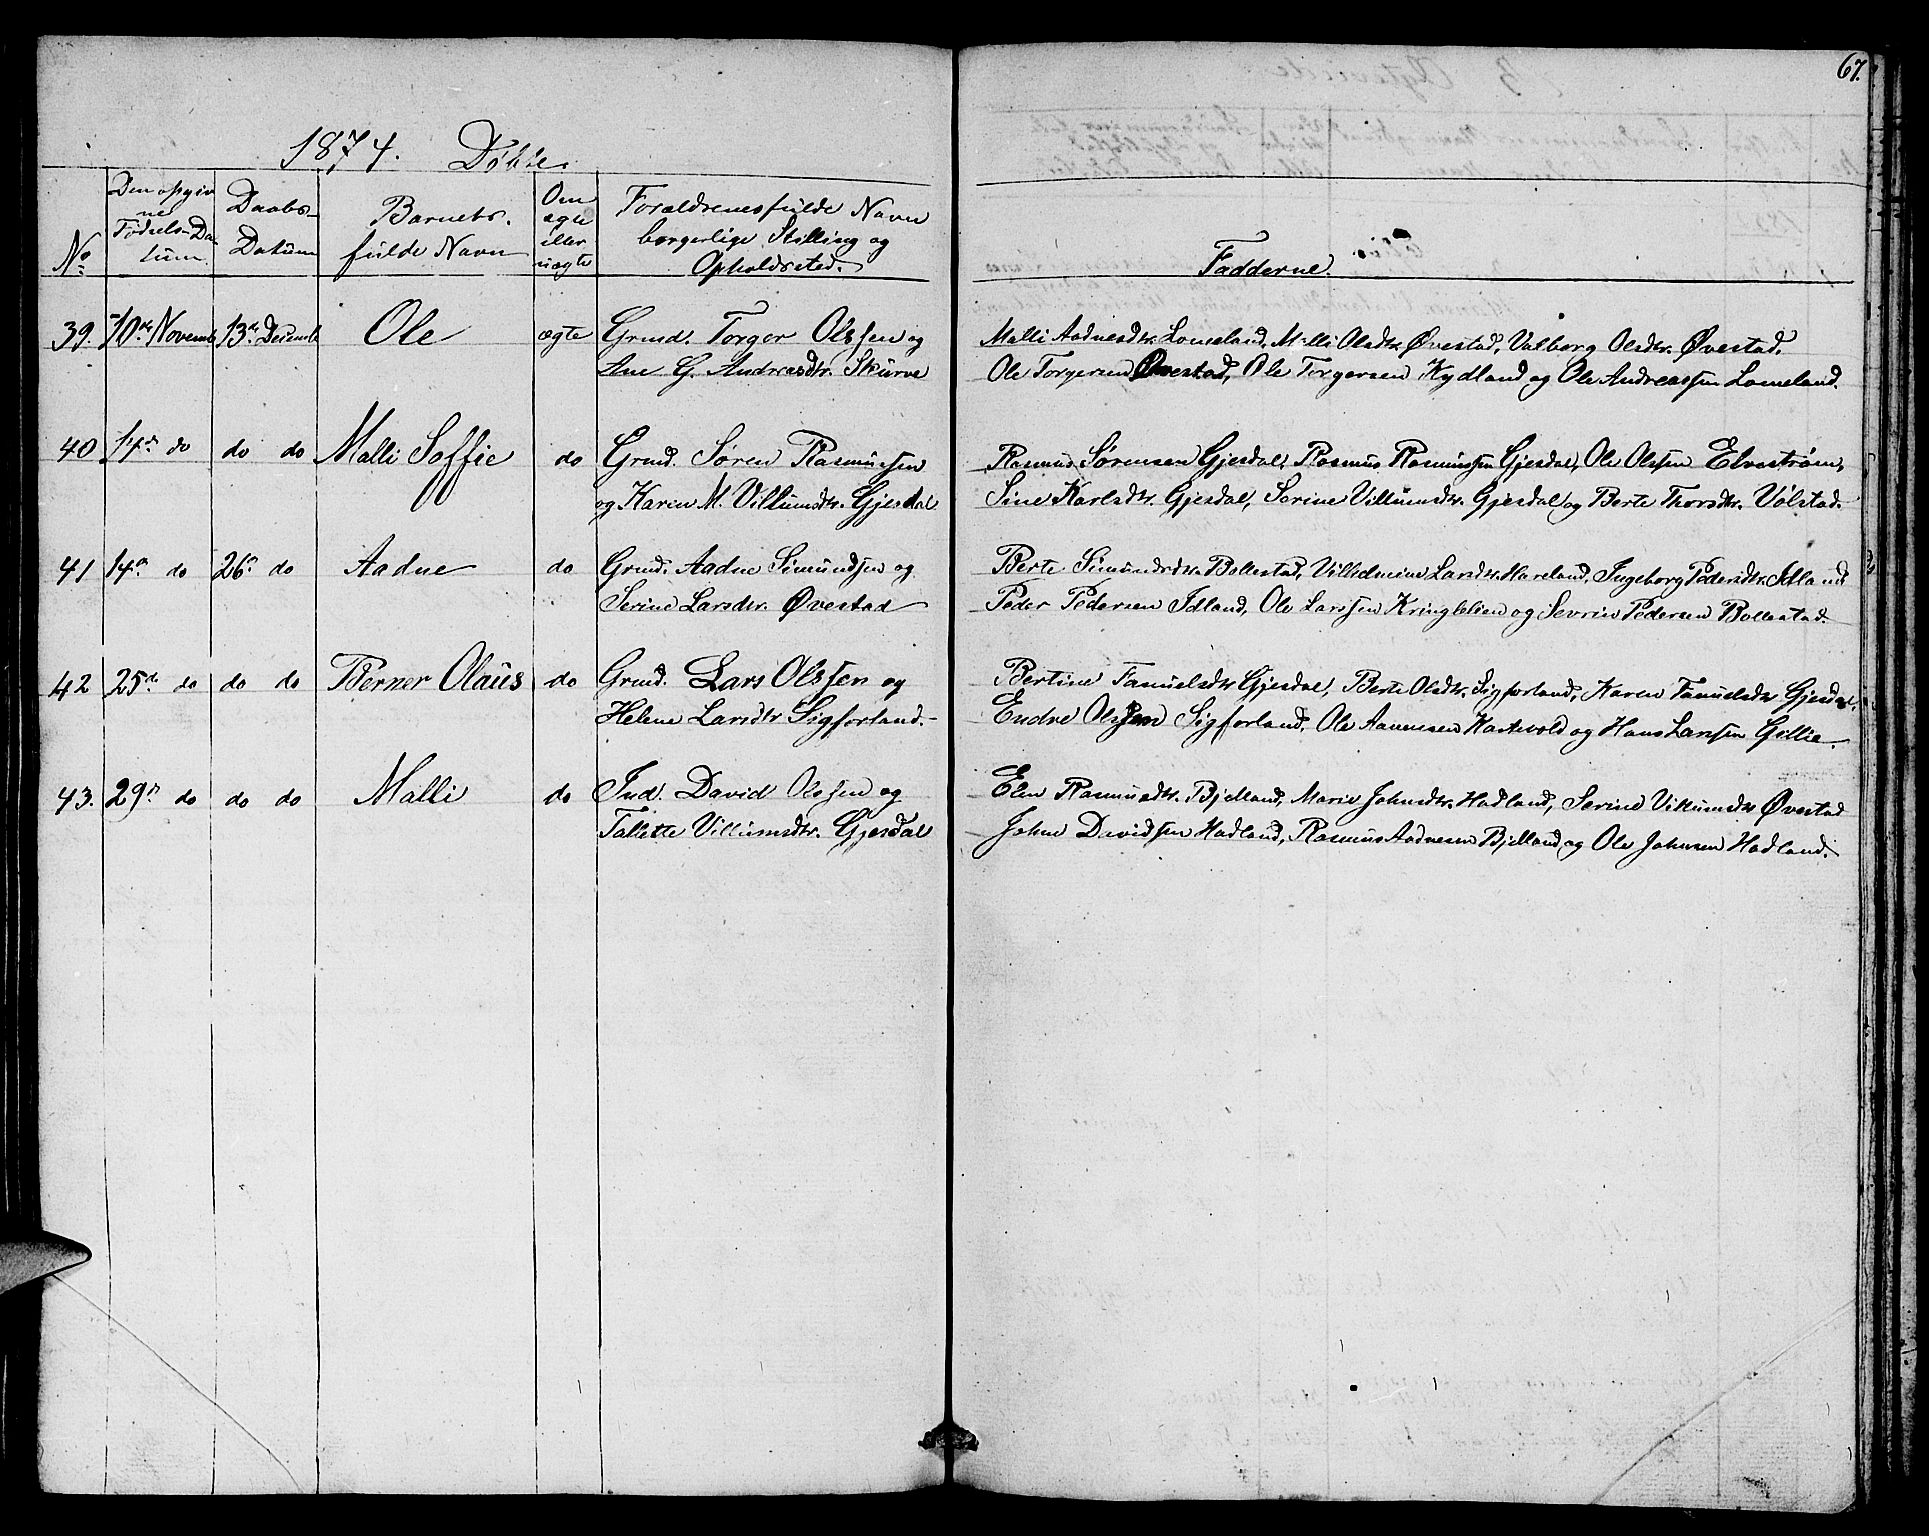 67.
1874. Döbte.
No.
Den opgivne Fødsels-Datum.
Daabs-Datum
Barnets fulde Navn
Om ægte eller uægte
Forældrenes fulde Navn borgerlige Stilling og Opholdssted.
Fadderne.
39. 10de Novemb 13de Decemb Ole ægte Grmd. Torger Olsen og
Ane G. Andreasdtr. Skurve
Malli Aadnesdtr. Lomeland, Malli Olsdtr. Øvestad, Valborg Olsdtr. Øvestad,
Ole Torgersen Øvestad, Ole Torgersen Kydland og Ole Andreassen Lomeland.
40 14de do do do Malli Soffie do Grmd. Søren Rasmussen
og Karen M. Villumsdtr. Gjesdal
Rasmus Sørensen Gjesdal, Rasmus Rasmussen Gjesdal, Ole Olsen Elvestrøm,
Sine Karlsdtr. Gjesdal, Serine Villumsdtr. Gjesdal og Berte Thorsdtr. Vølstad.
41 14de do 26de do Aadne do Grmd. Aadne Simundsen og
Serine Larsdtr. Øvestad
Berte Simundsdtr. Bollestad, Vilhelmine Larsdtr. Hareland, Ingeborg Pedersdtr. Idland
Peder Pedersen Idland, Ole Larssen Kringlelien og Sevrin Pedersen Bollestad.
42 25de do do do Berner Olaüs do Grmd. Lars Olssen og
Helene Larsdtr. Sigforland.
Bertine Tanuelsdtr. Gjesdal, Berte Olsdtr. Sigforland, Karen Tanuelsdtr Gjesdal,
Endre Olssen Sigforland, Ole Aanensen Kastevold og Hans Larssen Gillie.
43. 29de do do do Malli do Ind. David Olssen og
Tallette Villumsdtr. Gjesdal
Elen Rasmusdtr. Bjelland, Marie Johnsdtr. Hadland, Serine Villumsdtr Øvestad
John Davidsen Hadland, Rasmus Aadnesen Bjelland og Ole Johnsen Hadland.